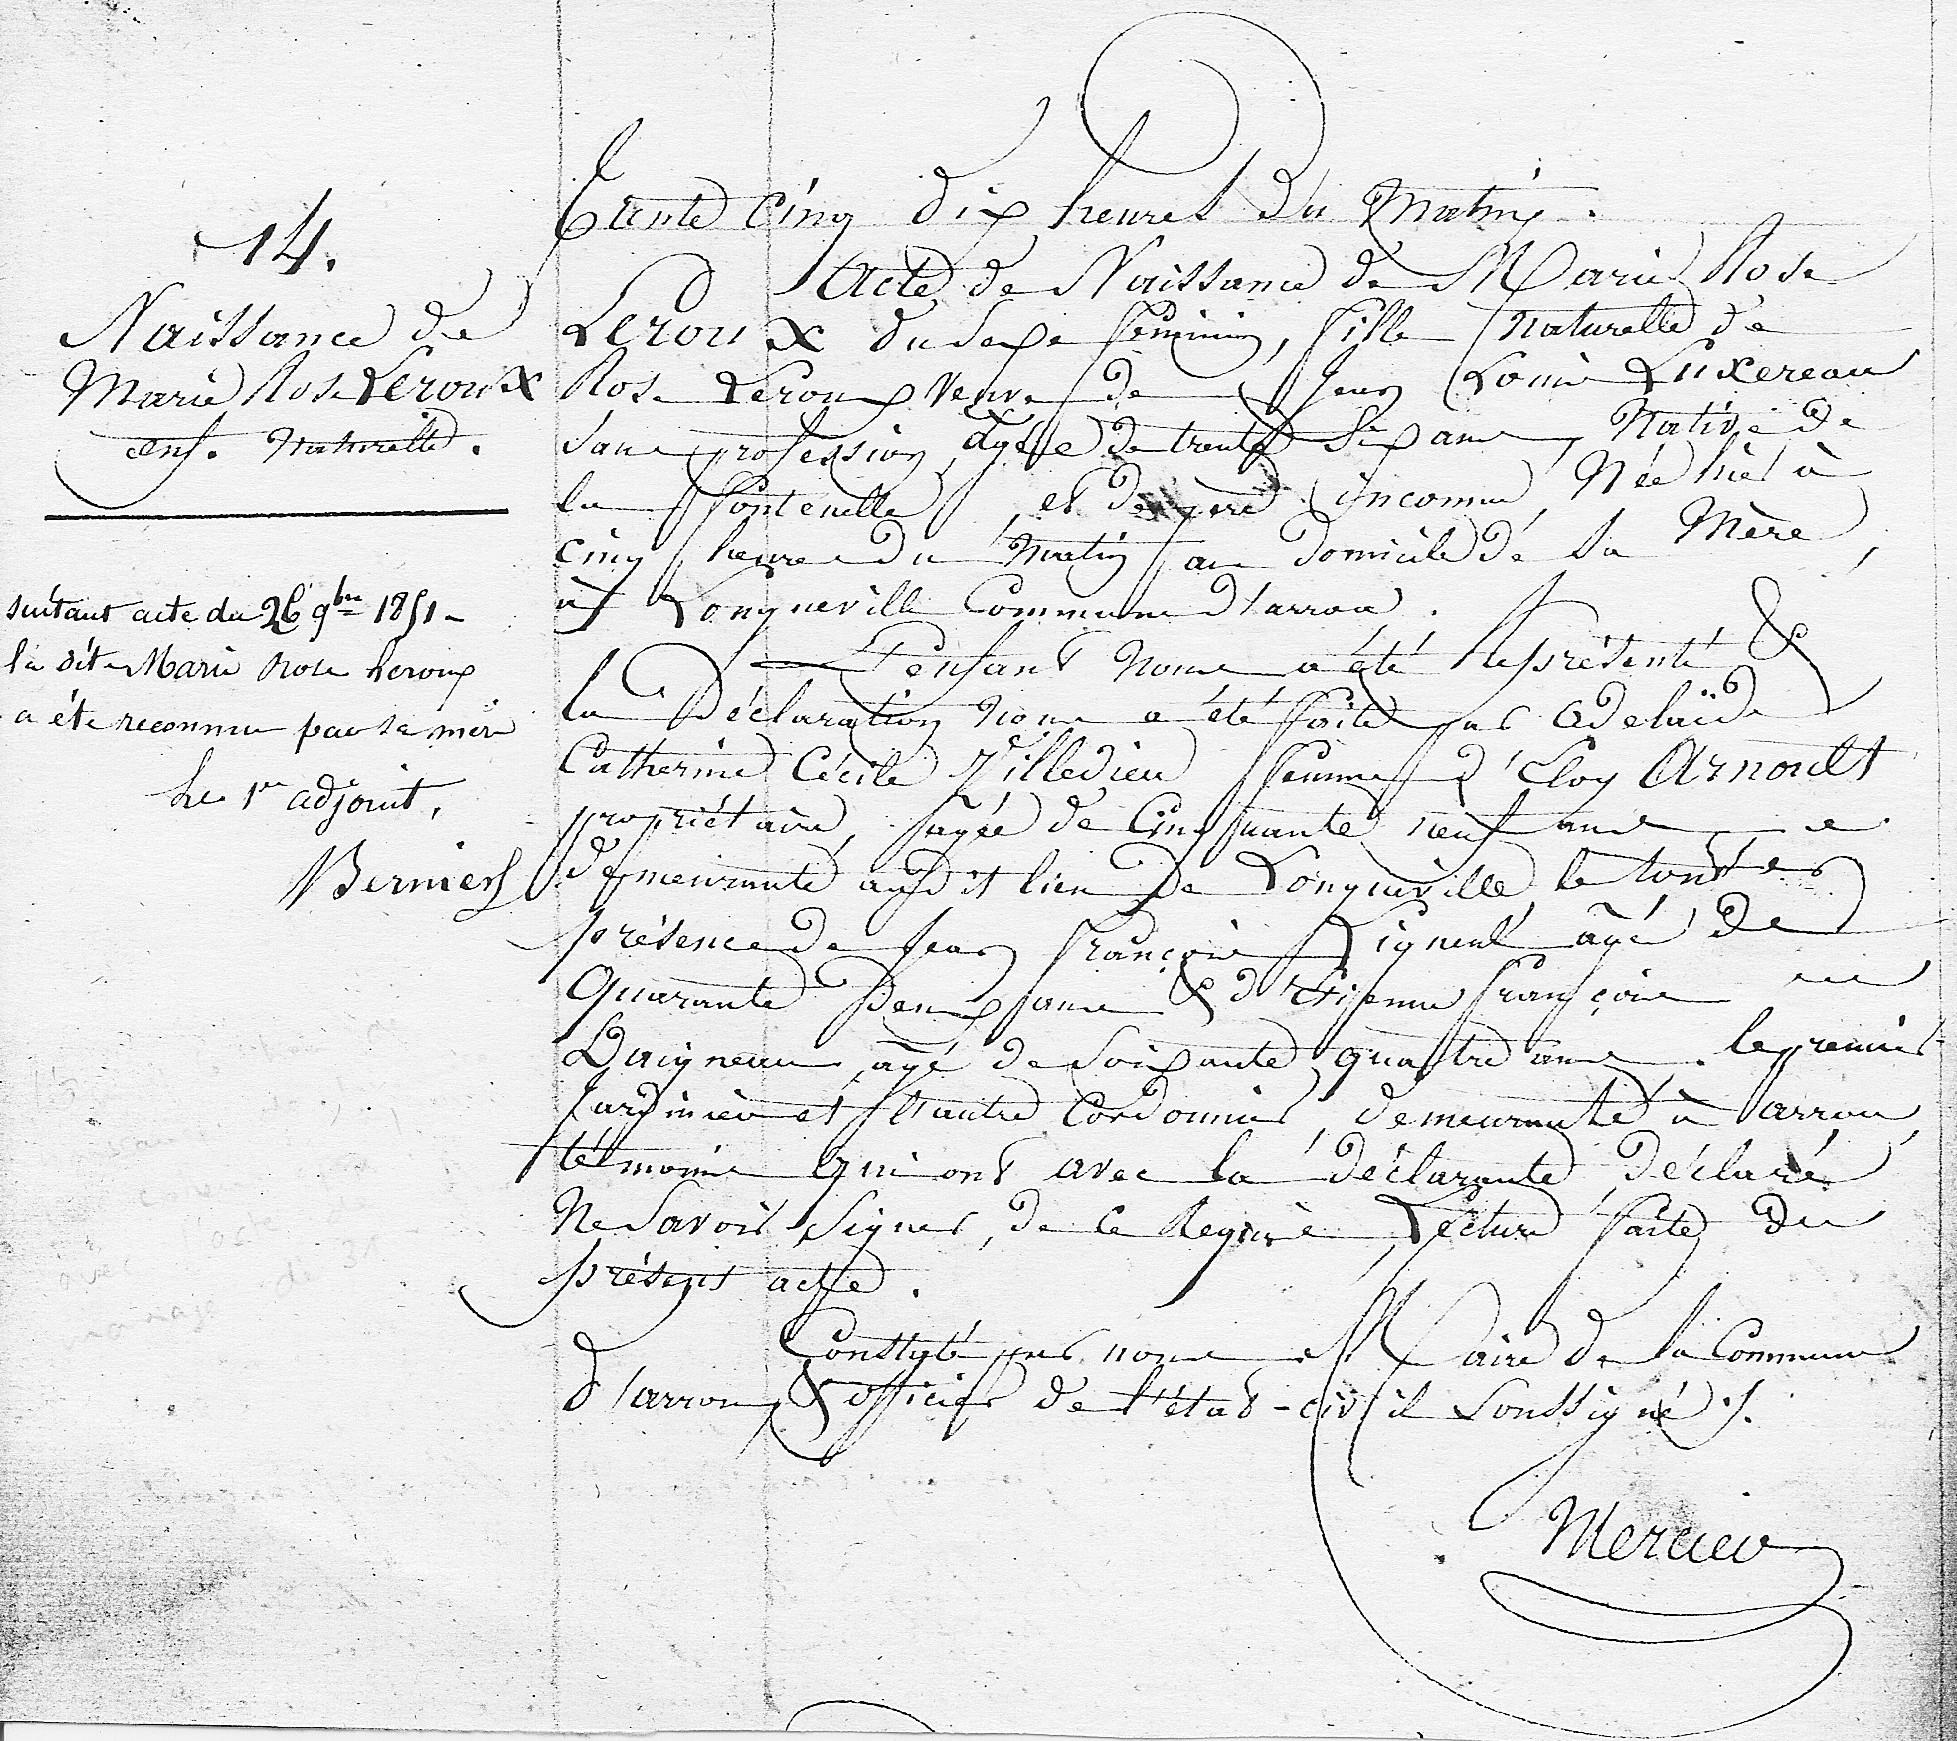 14.
Naissance de
Marie Rose Leroux
enf. Naturelle.
suivant acte du 26 9bre 1851 -
la dite Marie Rose Leroux
a été reconnue par sa mère
Le 1er adjoint,
Bernier
trente cinq dix heures du Matin.
Acte de Naissance de Marie Rose
Leroux du sexe féminin, fille Naturelle de
Rose Leroux veuve de Jean Louis Luxereau
sans profession, âgée de trente six ans, Native de
la fontenelle, et de père inconnu, Née hier à
cinq heures du Matin au domicile de sa Mère,
à Longueville Commune d'arrou.
L'enfant nous a été Représenté &
la Déclaration nous a été faite par Adelaïde
Catherine Cécile Villedieu femme d'Eloy Arnoult
propriétaire, âgée de Cinquante neuf ans
demeurante audit lieu de Longueville, le tout en
présence de Jean françois Ligneul âgé de
Quarante Deux ans & d'Etienne françois
Daigneau, âgé de Soixante quatre ans. le premier
Jardinier et l'autre Cordonnier, demeurants à arrou,
témoins qui ont avec la déclarante déclaré
Ne Savoir Signer, de ce Requis, Lecture faite du
présent acte.
Constaté par nous Maire de la Commune
d'arrou, & officier de l'état-civil Soussigné ./.
Mercier